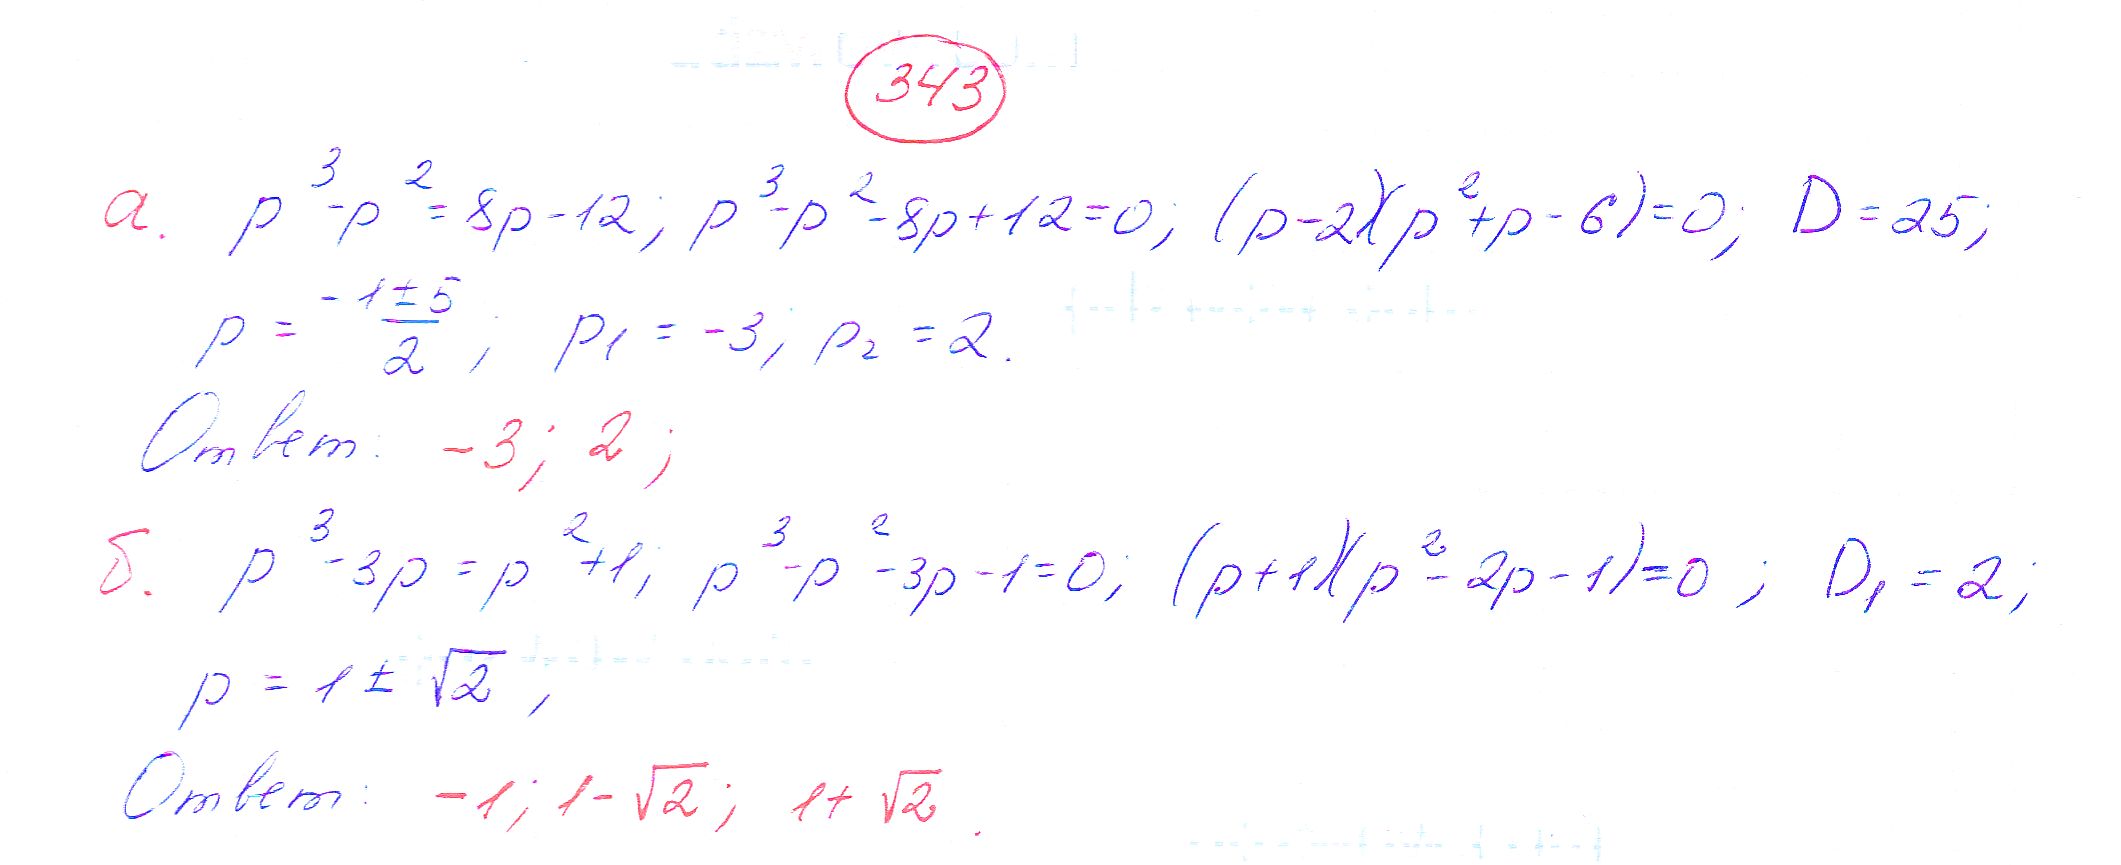 343
а. p³-p²=8p-12; p³-p²-8p+12=0; (p-2)(p²+p-6)=0; D=25;
p = (-1±5)/2; p₁ = -3; p₂ = 2.
Ответ: -3; 2;
б. p³-3p=p²+1; p³-p²-3p-1=0; (p+1)(p²-2p-1)=0; D₁=2;
p = 1 ± √2;
Ответ: -1; 1-√2; 1+√2.